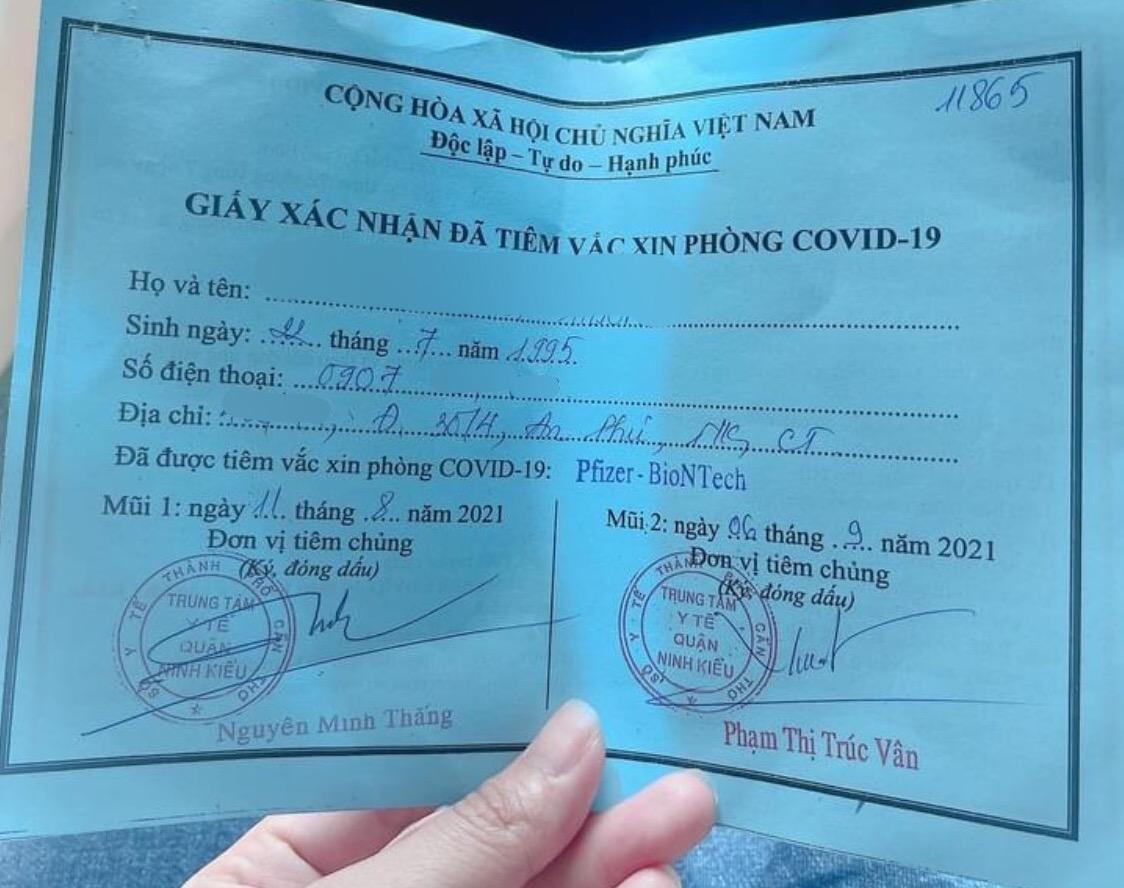 11865
CỘNG HÒA XÃ HỘI CHỦ NGHĨA VIỆT NAM
Độc lập – Tự do – Hạnh phúc
GIẤY XÁC NHẬN ĐÃ TIÊM VẮC XIN PHÒNG COVID-19
Họ và tên:
Sinh ngày: tháng 7 năm 1995
Số điện thoại: 0907
Địa chỉ: Đ. 30/4, An Phú, NK, CT
Đã được tiêm vắc xin phòng COVID-19: Pfizer - BioNTech
Mũi 1: ngày 11 tháng 8 năm 2021
Đơn vị tiêm chủng
(Ký, đóng dấu)
SỞ Y TẾ THÀNH PHỐ CẦN THƠ
TRUNG TÂM
Y TẾ
QUẬN
NINH KIỀU
Nguyễn Minh Thắng
Mũi 2: ngày 06 tháng 9 năm 2021
Đơn vị tiêm chủng
(Ký, đóng dấu)
SỞ Y TẾ THÀNH PHỐ CẦN THƠ
TRUNG TÂM
Y TẾ
QUẬN
NINH KIỀU
Phạm Thị Trúc Vân